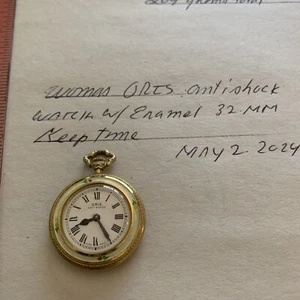 204 grams total
woman ORIS antishock
WATCH w/ Enamel 32 MM
Keep time
MAY 2. 2024
ORIS
XII
I
II
III
IIII
V
VI
VII
VIII
IX
X
XI